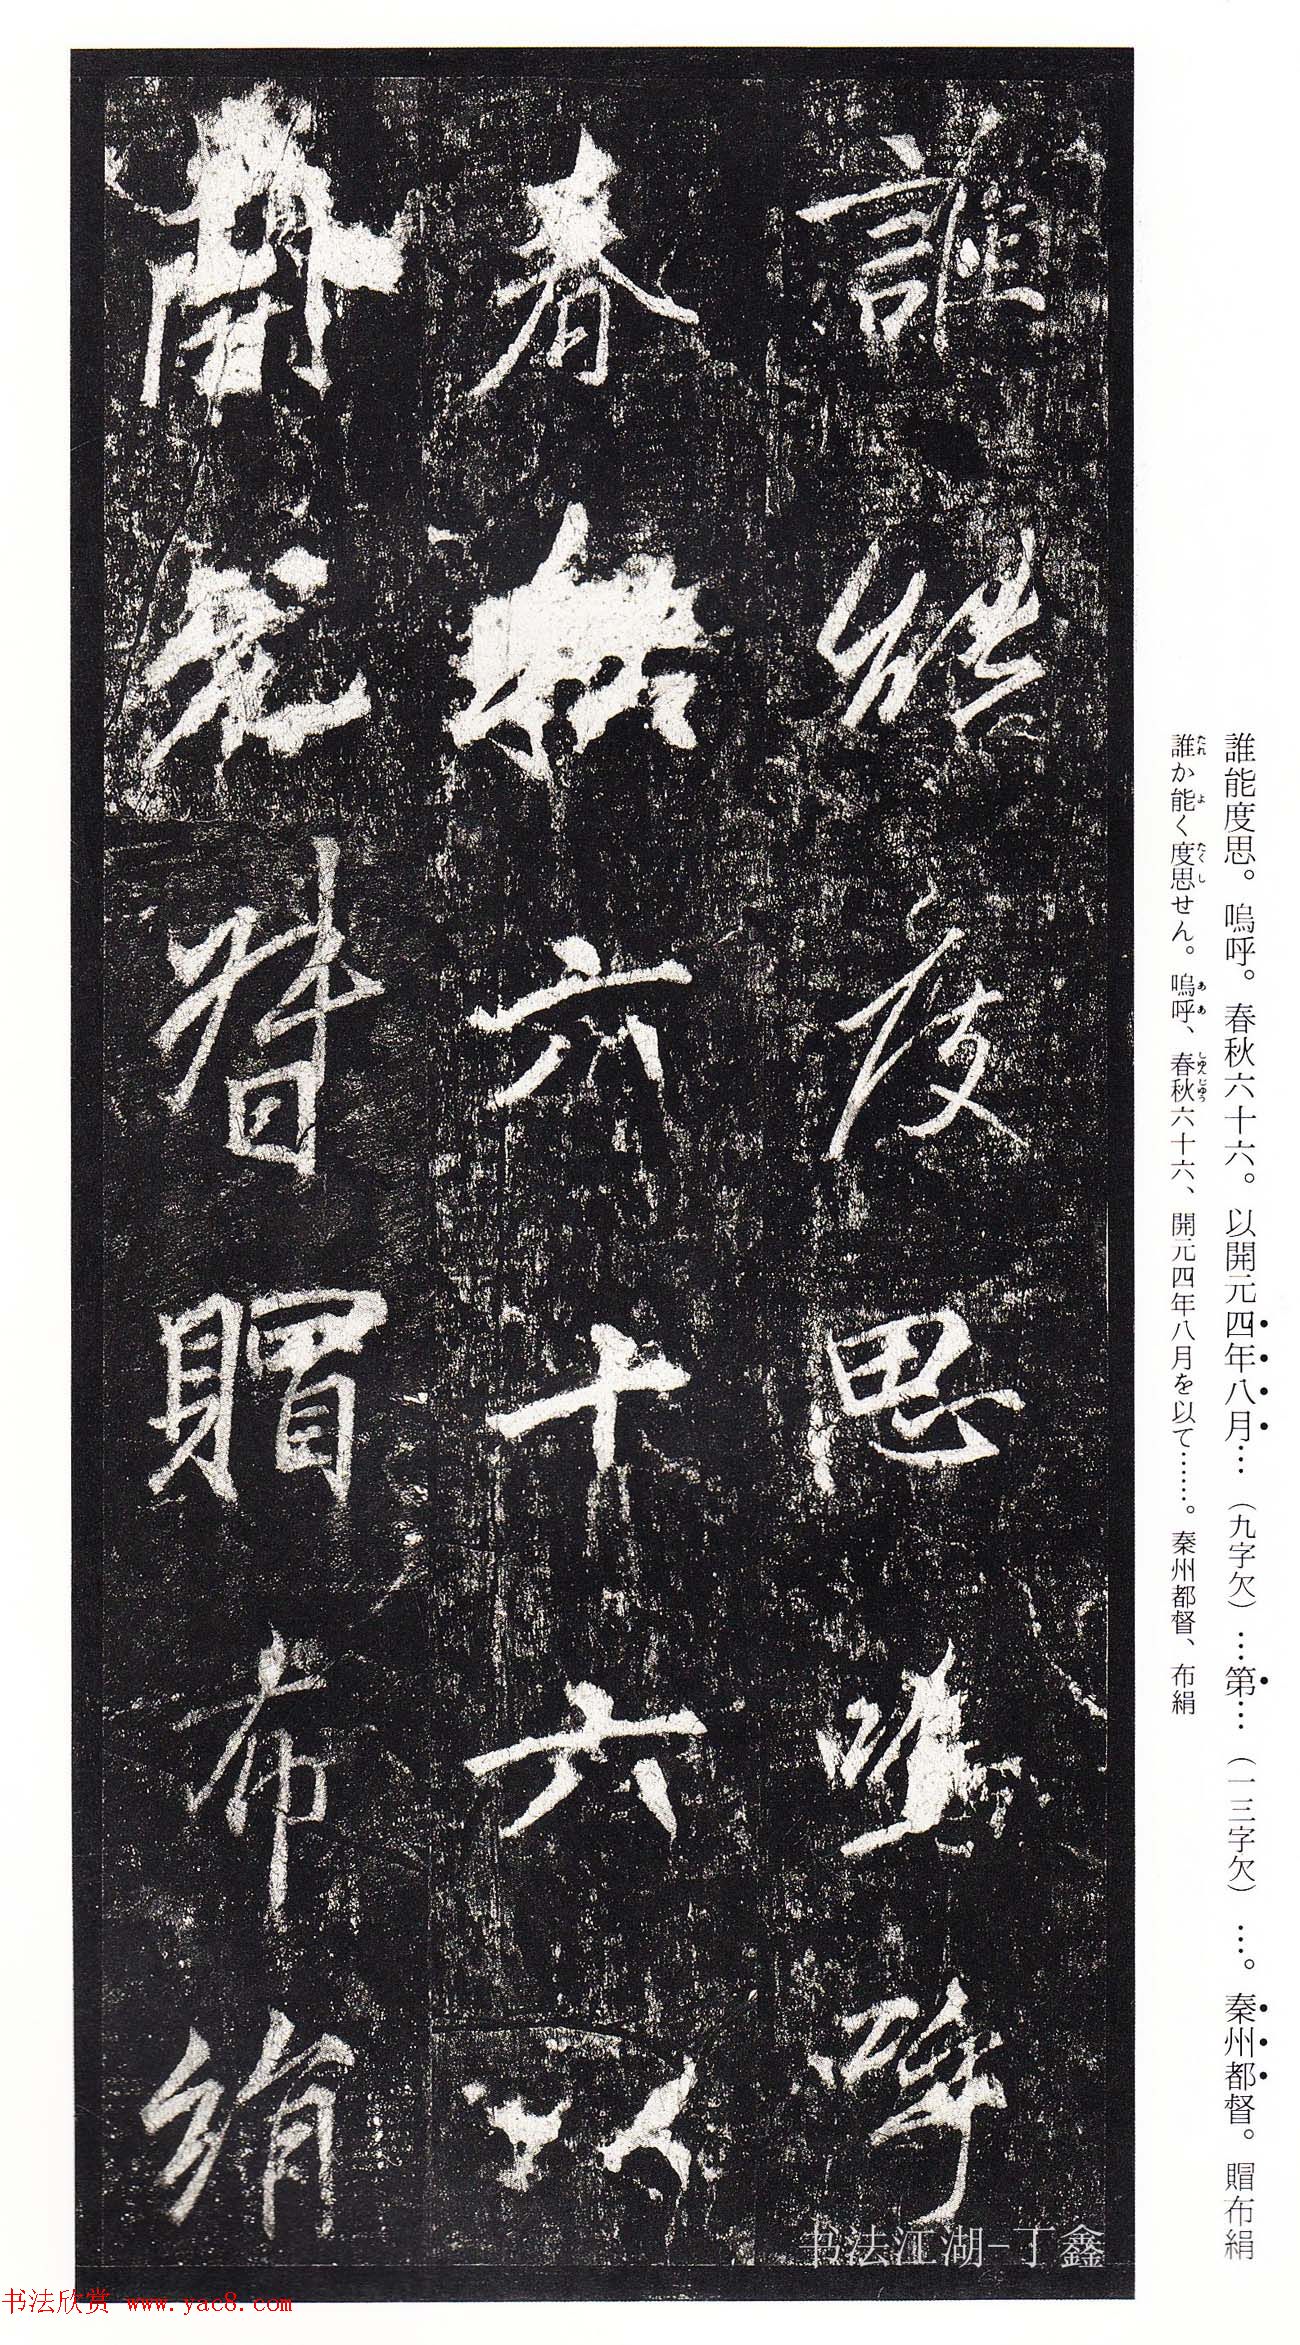 誰能度思嗚呼
春秋六十六以
開元督賵布絹
誰能度思。嗚呼。春秋六十六。以開元四年八月…（九字欠）…第…（一三字欠）…。秦州都督。賵布絹
誰か能く度思せん。嗚呼、春秋六十六、開元四年八月を以て……。秦州都督、布絹
たれ よ たくし ああ しゅんじゅう
书法江湖-丁鑫
书法欣赏 www.yac8.com